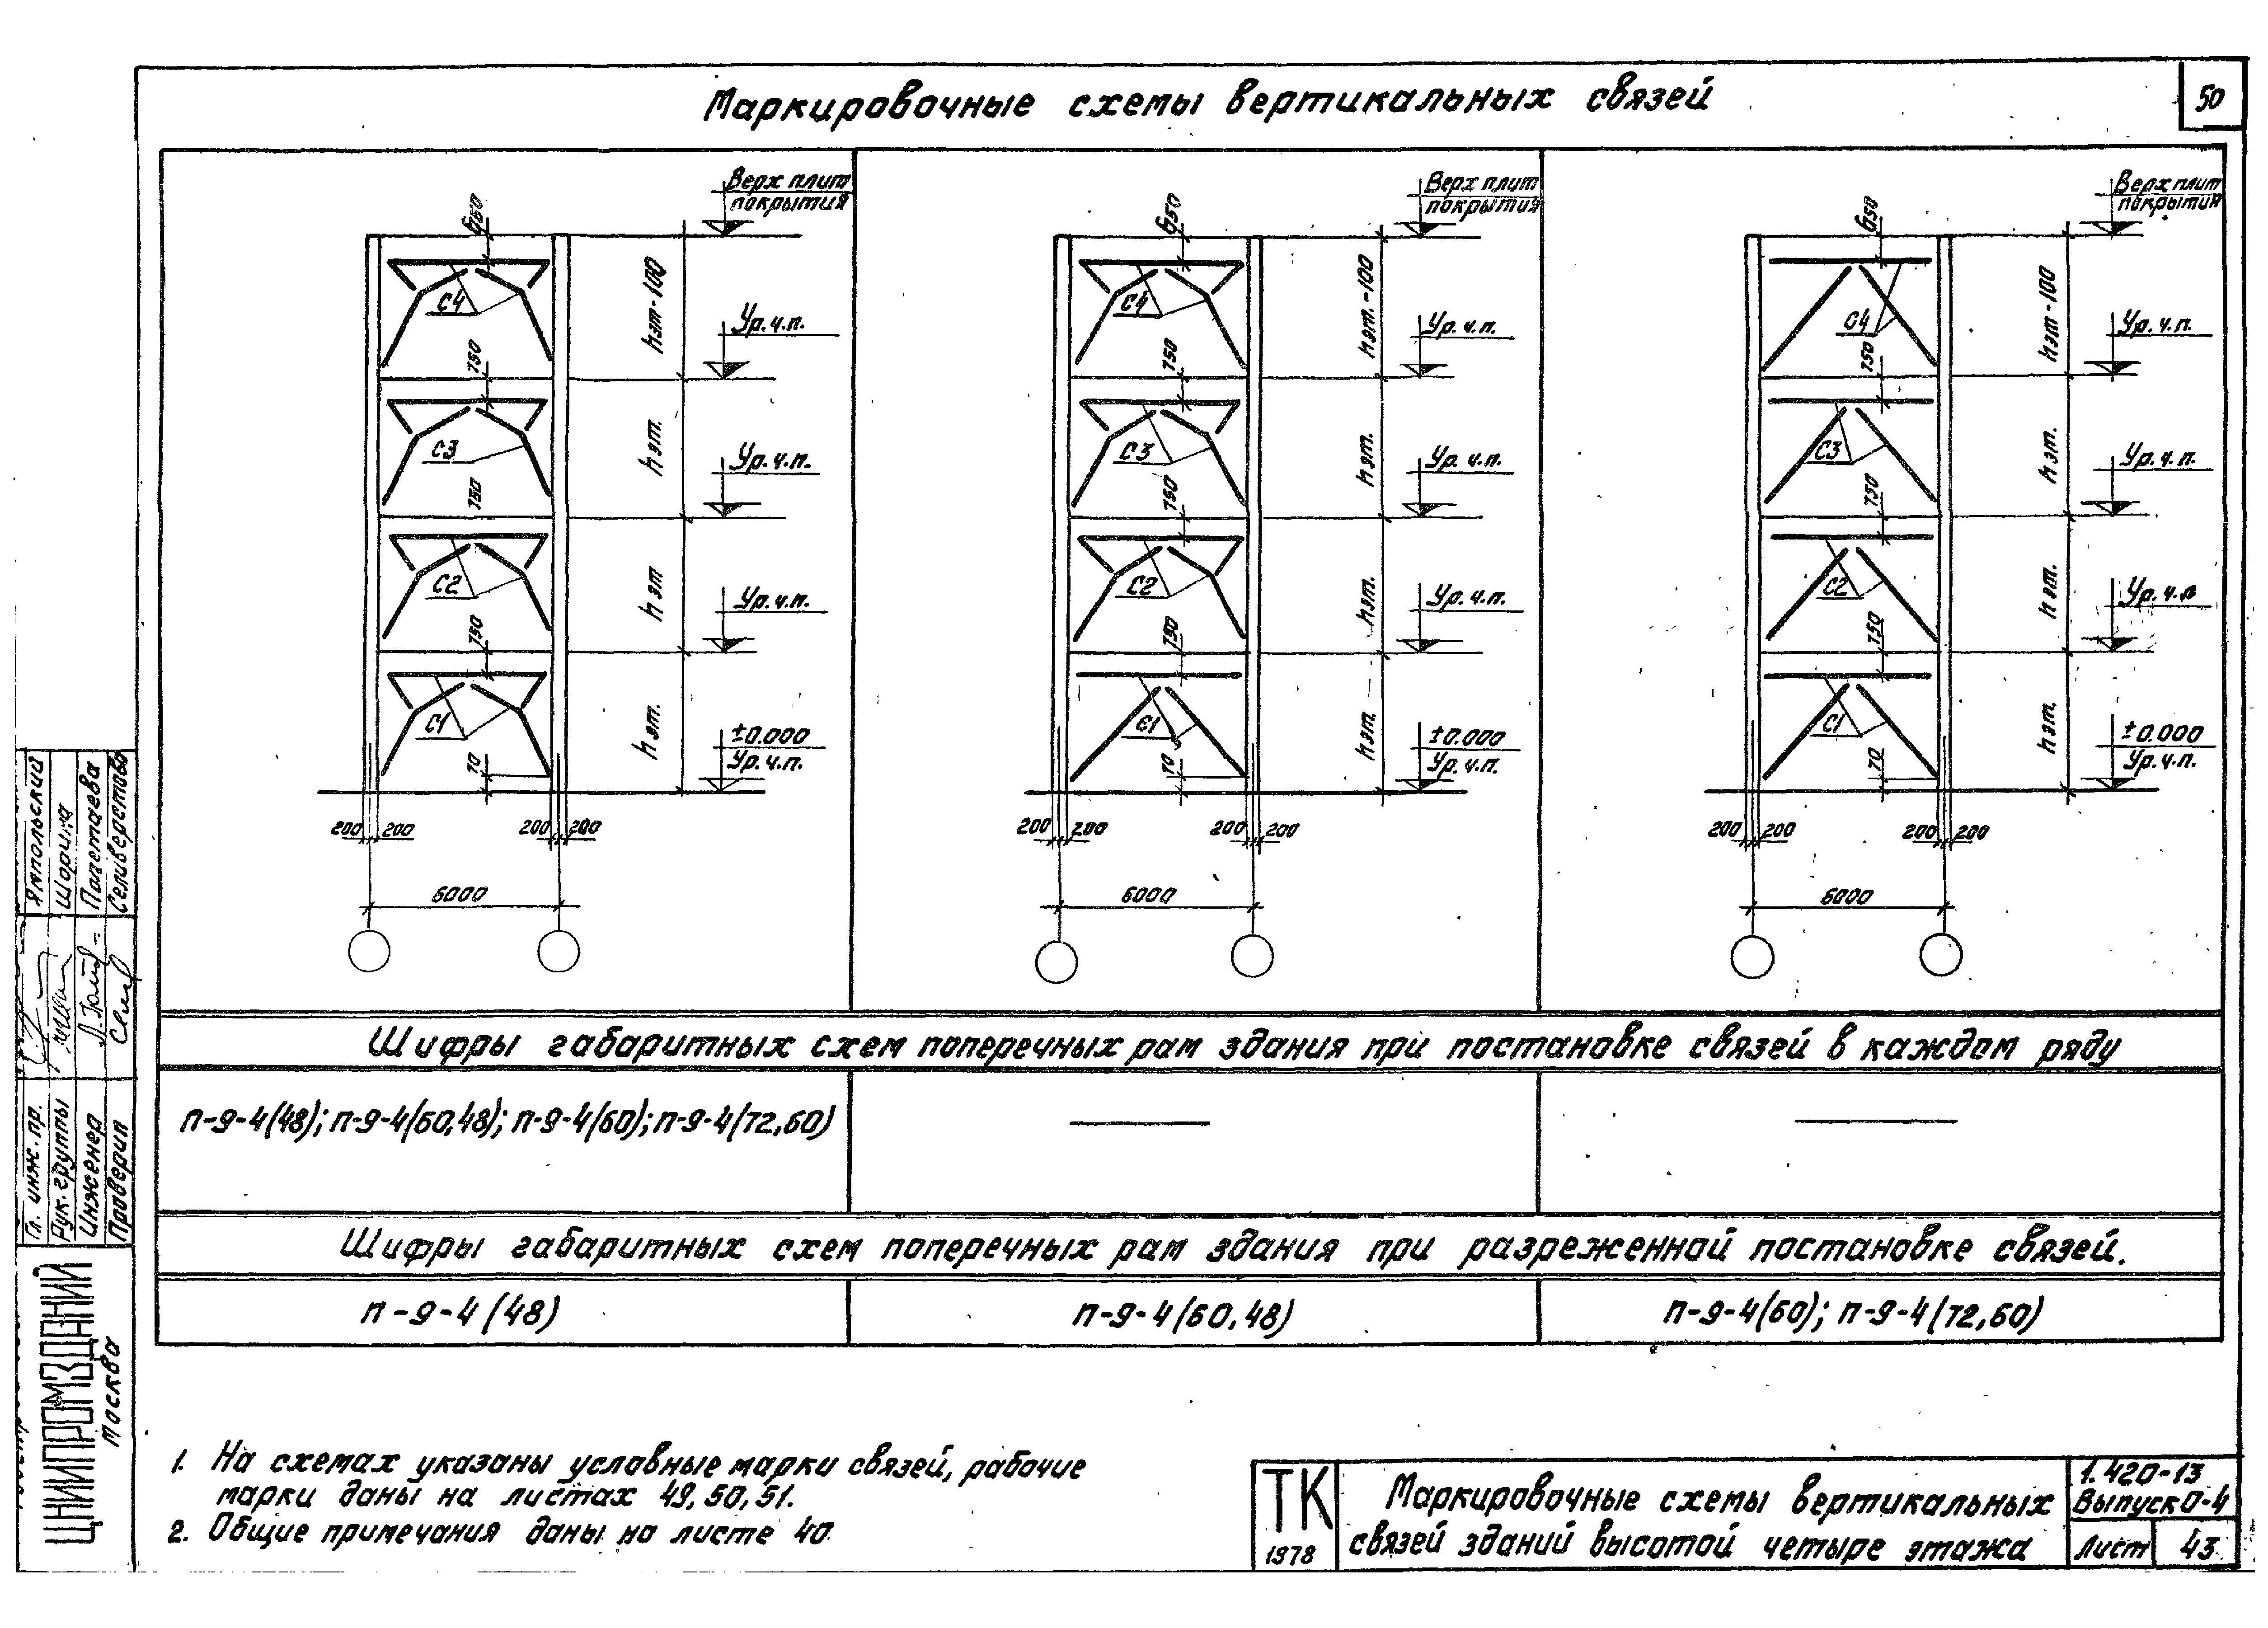 Маркировочные схемы вертикальных связей
50
Верх плит
покрытия
650
С4
hэт-100
Ур.ч.п.
750
С3
hэт.
Ур.ч.п.
750
С2
hэт
Ур.ч.п.
750
С1
hэт.
±0.000
Ур.ч.п.
70
200 200 200 200
6000
Верх плит
покрытия
650
С4
hэт.-100
Ур.ч.п.
750
С3
hэт.
Ур.ч.п.
750
С2
hэт.
Ур.ч.п.
750
С1
hэт.
±0.000
Ур.ч.п.
70
200 200 200 200
6000
Верх плит
покрытия
650
С4
hэт-100
Ур.ч.п.
750
С3
hэт.
Ур.ч.п.
750
С2
hэт.
Ур.ч.п
750
С1
hэт.
±0.000
Ур.ч.п.
70
200 200 200 200
6000
Шифры габаритных схем поперечных рам здания при постановке связей в каждом ряду
п-9-4(48); п-9-4(60,48); п-9-4(60); п-9-4(72,60)
Шифры габаритных схем поперечных рам здания при разреженной постановке связей.
п-9-4(48)
п-9-4(60,48)
п-9-4(60); п-9-4(72,60)
1. На схемах указаны условные марки связей, рабочие
марки даны на листах 49, 50, 51.
2. Общие примечания даны на листе 40
ТК
1978
Маркировочные схемы вертикальных
связей зданий высотой четыре этажа
1.420-13
Выпуск 0-4
Лист 43
Гл. инж. пр.
Ямпольский
Рук. группы
Шорина
Инженер
Проверил
Селиверстова
ЦНИИПРОМЗДАНИЙ
Москва